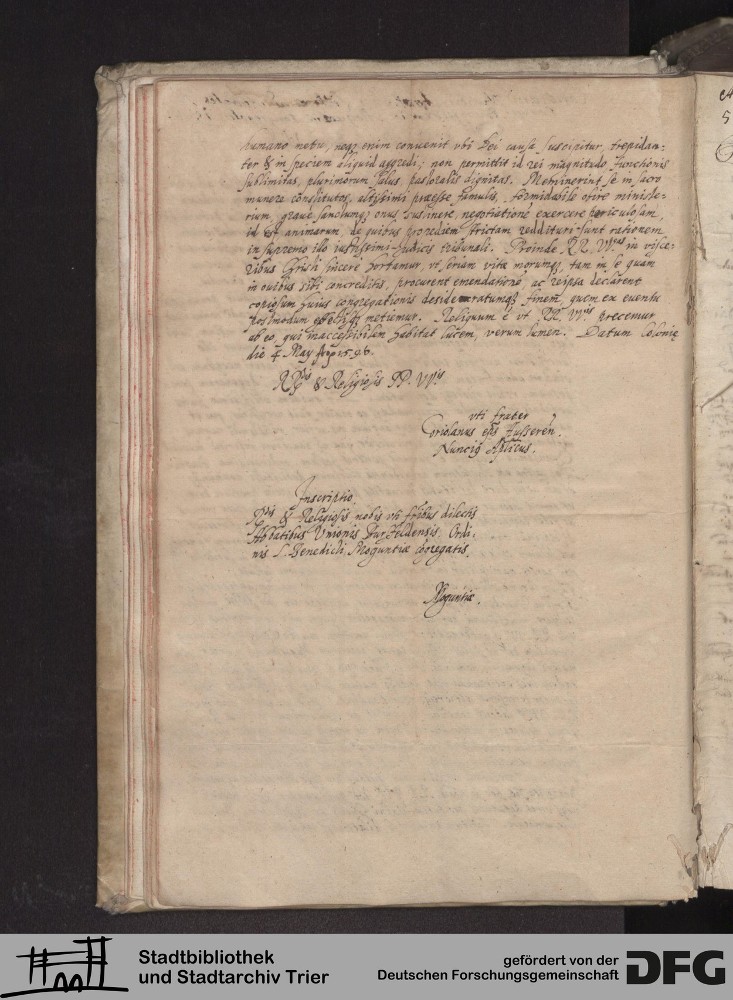 humano metu, neq3 enim convenit vbi Dei causa suscipitur, trepidan-
ter & in speciem aliquid aggredi; non permittit id rei magnitudo, functionis
sublimitas, plurimorum salus, pastoralis dignitas. Meminerint se in sacro
munere constitutos, altissimi praeesse famulis, formidabile opus ministe-
rium, graue sanctumq3 onus sustinere, negotiatione exercere periculosam,
id est animarum, de quibus strictam reddituri sunt rationem
in supremo illo iustissimi Judicis tribunali. Proinde RR. VV.es in visce-
ribus Christi sincere hortamur, vt seriam vitae morumq3, tam in se quam
in ouibus sibi concreditis, procurent emendatione, ac reipsa declarent
copiosum huius congregationis desideratumq3 finem, quem ex euentu
postmodum metiemur. Reliquum e vt RR. VV.is precemur
ab eo, qui inaccessibilem habitat lucem, verum lumen. Datum Colonię
die 4 May 1596.
& Religiosis PP. VV.is
vti frater
Coriolanus eps Ausseren.
Nunciq Aplicus.
Inscriptio.
& Religiosis nobis vti fribus dilectis
Abbatibus Vnionis Bursfeldensis. Ordi-
nis S. Benedicti, Moguntiae cogregatis.
Moguntiae.
Stadtbibliothek
und Stadtarchiv Trier
gefördert von der
Deutschen Forschungsgemeinschaft
DFG